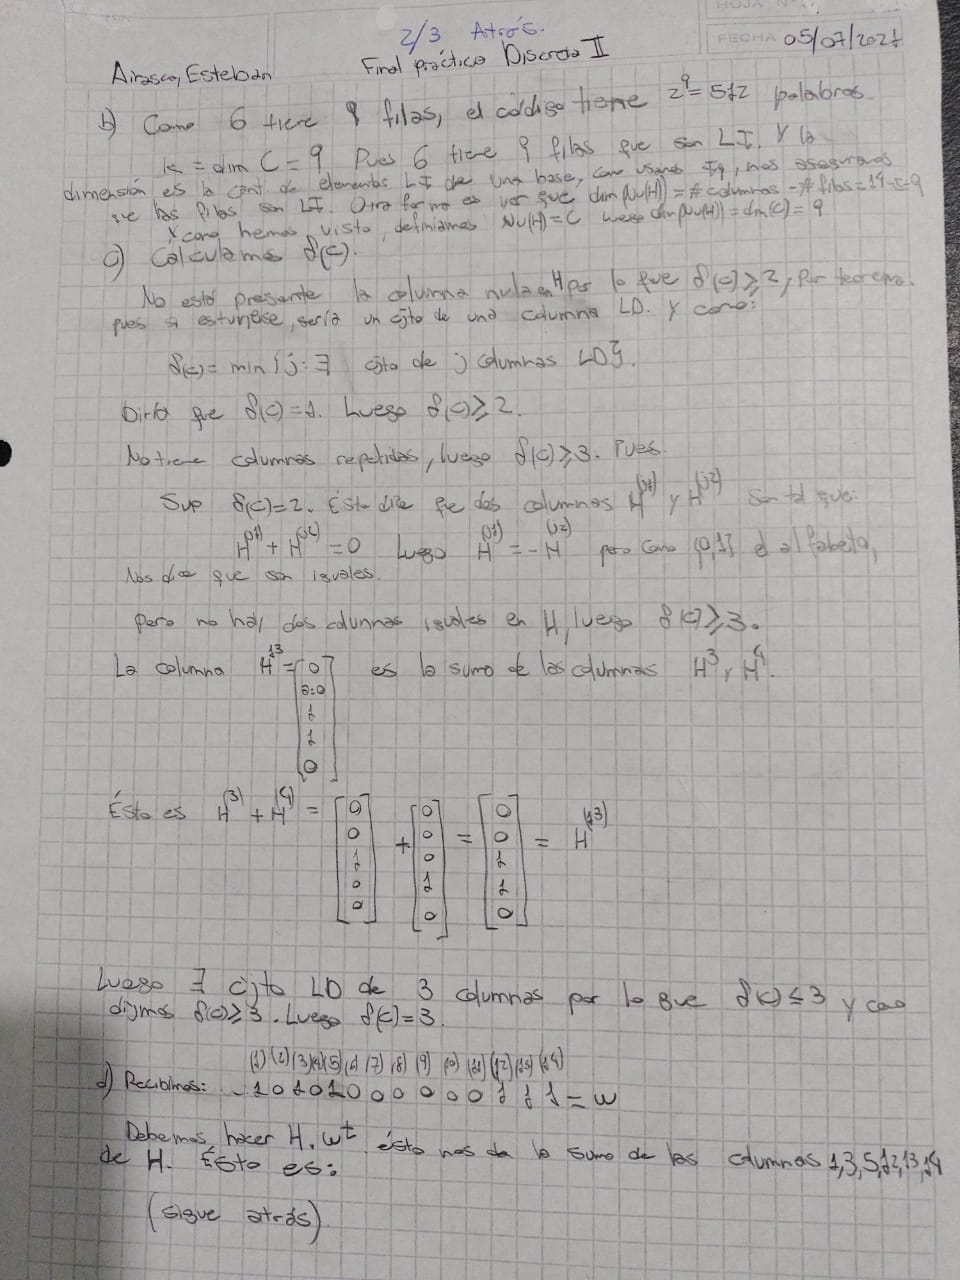 HOJA N°
2/3 Atrás.
FECHA 05/07/2021
Airasca, Esteban
Final práctico Discreta II
b) Como G tiene 9 filas, el código tiene 2^9 = 512 palabras.
k = dim C = 9 Pues G tiene 9 filas que son LI. Y la
dimensión es la cant. de elementos LI de una base, como usamos I9, nos aseguramos
que las filas son LI. Otra forma es ver que dim(Nu(H)) = # columnas - # filas = 14-5=9
Y como hemos visto, definiamos Nu(H) = C luego dim(Nu(H)) = dim(C) = 9
c) Calculamos δ(C).
No está presente la columna nula en H por lo que δ(C) ≥ 2, por teorema.
pues si estuviese, sería un cjto de una columna LD. Y como:
δ(C) = min {j: ∃ cjto de j columnas LD}.
Diría que δ(C) = 1. Luego δ(C) ≥ 2.
No tiene columnas repetidas, luego δ(C) ≥ 3. Pues
Sup δ(C) = 2. Ésto dice que dos columnas H^(j1) y H^(j2) son tal que:
H^(j1) + H^(j2) = 0 Luego H^(j1) = - H^(j2) pero como {0,1} el alfabeto,
Nos dice que son iguales.
Pero no hay dos columnas iguales en H, luego δ(C) ≥ 3.
La columna H^13 = [0 0 1 1 0] es la suma de las columnas H^3 y H^4.
Ésto es H^(3) + H^(4) = [0 0 1 0 0] + [0 0 0 1 0] = [0 0 1 1 0] = H^(13)
Luego ∃ cjto LD de 3 columnas por lo que δ(C) ≤ 3 y como
dijimos δ(C) ≥ 3. Luego δ(C) = 3.
(1) (2) (3) (4) (5) (6) (7) (8) (9) (10) (11) (12) (13) (14)
d) Recibimos: 1 0 1 0 1 0 0 0 0 0 0 1 1 1 = w
Debemos hacer H.w^t, ésto nos da la suma de las columnas 1,3,5,12,13,14
de H. Ésto es:
(sigue atrás)